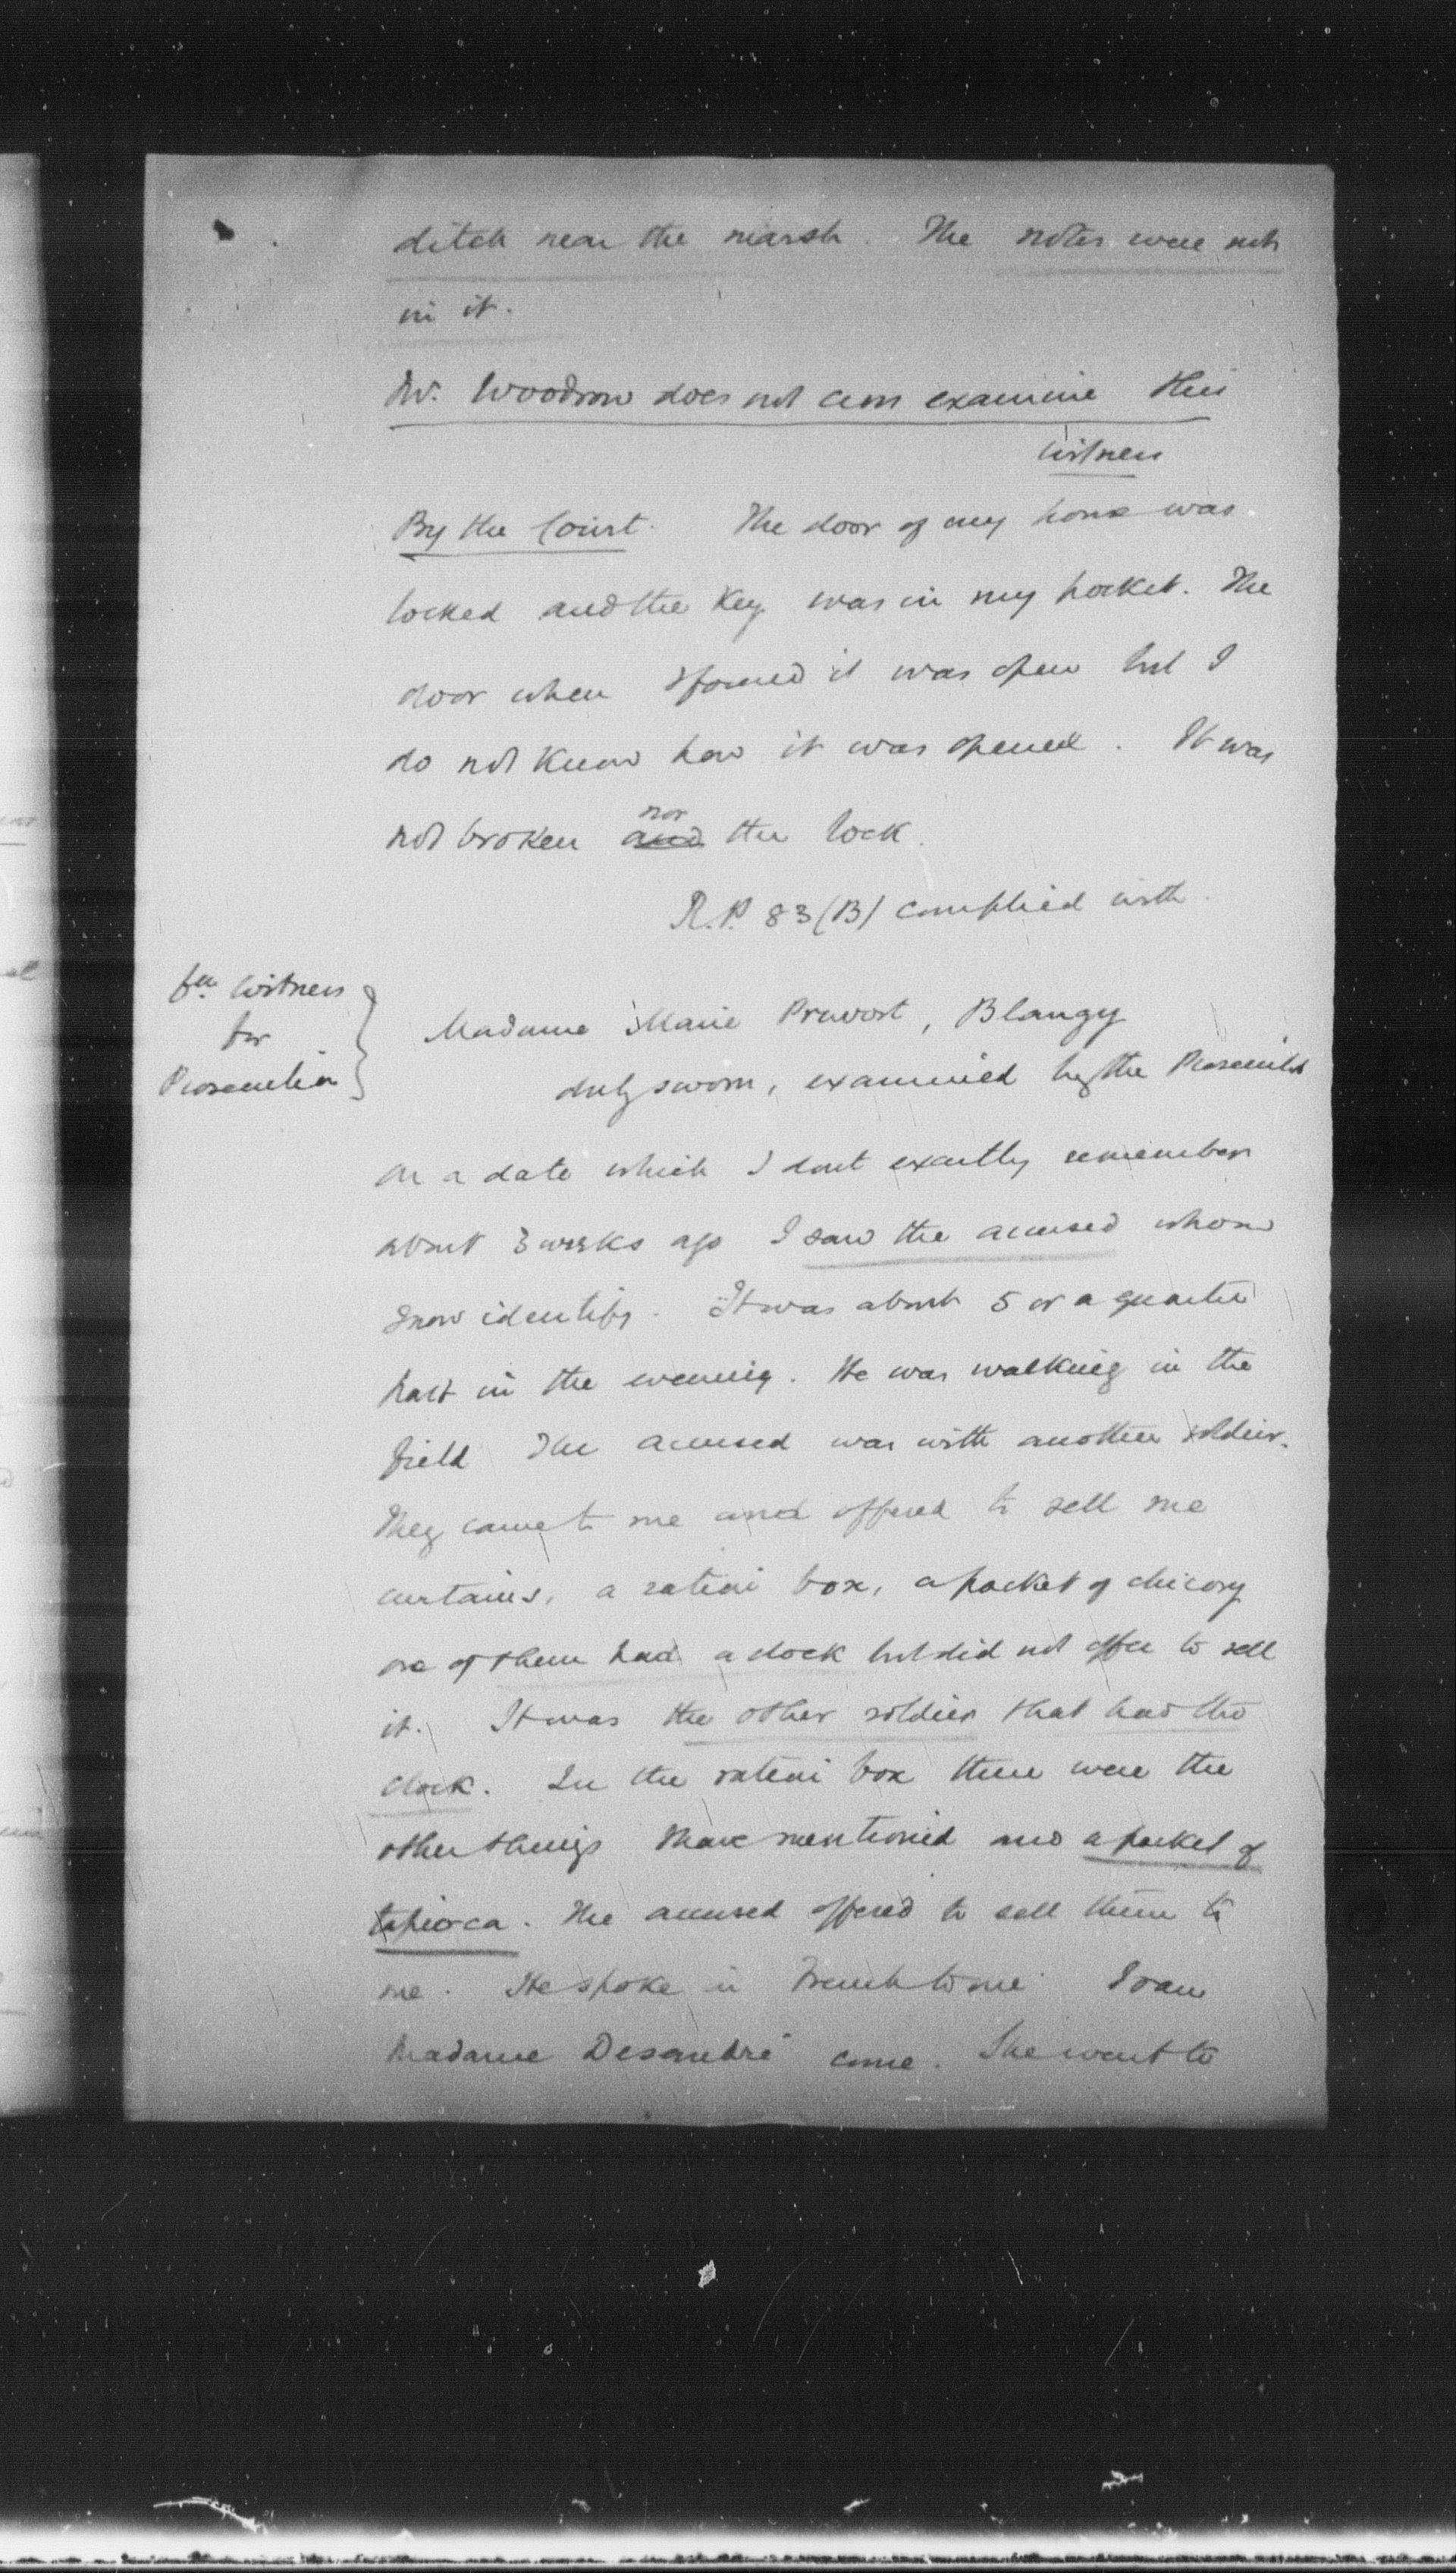 ditch near the marsh. The notes were not
in it.
Mr. Woodrow does not cross examine this
witness
By the Court. The door of my house was
locked and the key was in my pocket. The
door when I found it was open but I
do not know how it was opened. It was
not broken and nor the lock.
R.P. 83 (B) complied with.
witness
for
Prosecution
Madame Marie Pruvost, Blangy
duly sworn, examined by the Prosecutor
On a date which I dont exactly remember
about 3 weeks ago I saw the accused whom
I now identify. It was about 5 or a quarter
past in the evening. He was walking in the
field The accused was with another soldier.
They came to me and offered to sell me
curtains, a ration box, a packet of chicory
one of them had a clock but did not offer to sell
it. It was the other soldier that had the
clock. In the ration box there were the
other things I have mentioned and a packet of
tapioca. The accused offered to sell them to
me. He spoke in French to me. I saw
Madame come. She went to